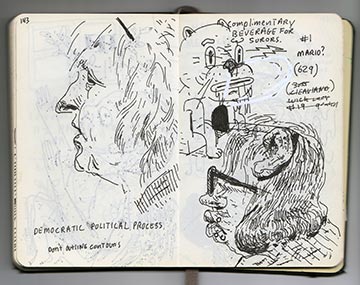 143
DEMOCRATIC POLITICAL PROCESS
DON'T OUTLINE CONTOURS
COMPLIMENTARY
BEVERAGE FOR
CJ JURORS.
#1
MARIO?
(629)